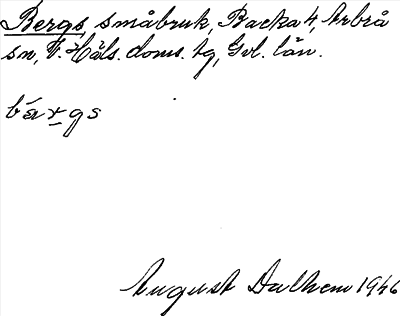 Bergs småbruk, Backa 4, Arbrå
sn, V. Häls. doms. tg, Gvl. län.
bárgs
August Dalhem 1946